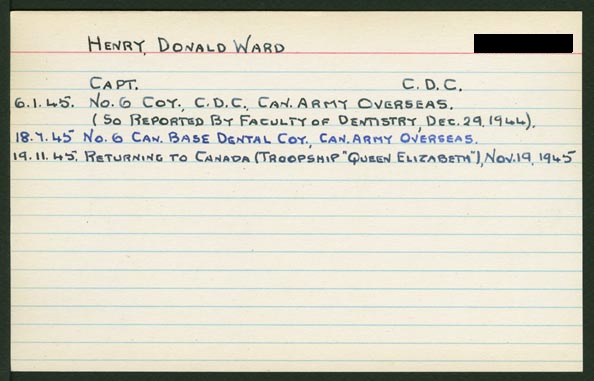 HENRY, DONALD WARD
CAPT. C.D.C.
6.1.45. No. 6 COY., C.D.C., CAN. ARMY OVERSEAS.
(SO REPORTED BY FACULTY OF DENTISTRY, DEC. 29, 1944).
18.7.45 No. 6 CAN. BASE DENTAL COY., CAN. ARMY OVERSEAS.
19.11.45. RETURNING TO CANADA (TROOPSHIP "QUEEN ELIZABETH"), NOV. 19, 1945